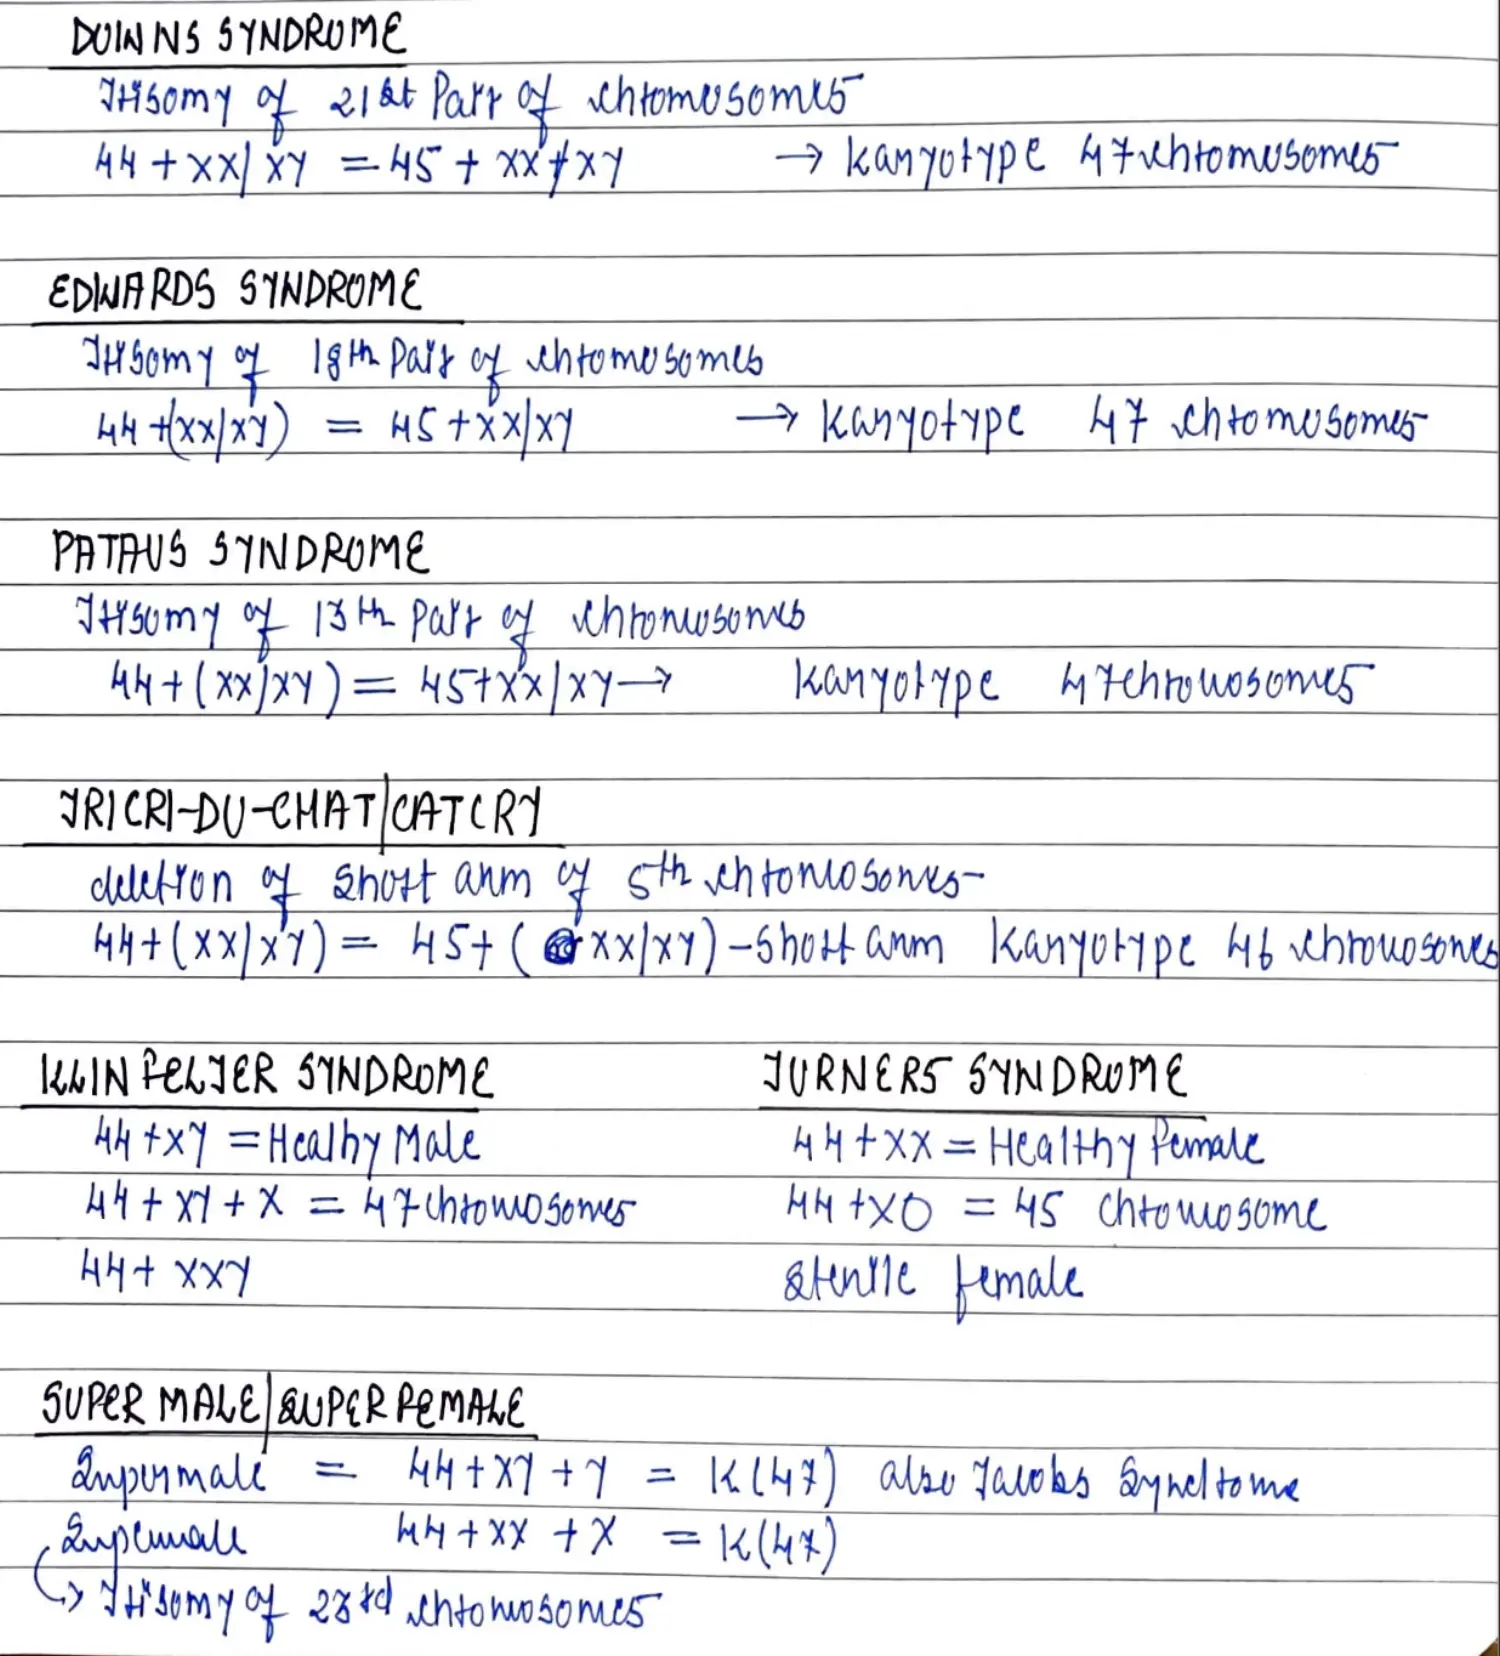 DOWNS SYNDROME
Trisomy of 21st Pair of chromosomes
44 + XX/XY = 45 + XX/XY → karyotype 47 chromosomes
EDWARDS SYNDROME
Trisomy of 18th Pair of chromosomes
44 + (XX/XY) = 45 + XX/XY → karyotype 47 chromosomes
PATAUS SYNDROME
Trisomy of 13th Pair of chromosomes
44 + (XX/XY) = 45 + XX/XY → karyotype 47 chromosomes
TRICRI-DU-CHAT/CATCRY
deletion of short arm of 5th chromosomes-
44 + (XX/XY) = 45 + (XX/XY) - short arm karyotype 46 chromosomes
KLINFELTER SYNDROME
44 + XY = Healhy Male
44 + XY + X = 47 chromosomes
44 + XXY
TURNERS SYNDROME
44 + XX = Healthy female
44 + XO = 45 chromosome
sterile female
SUPER MALE/SUPER FEMALE
Supermale = 44 + XY + Y = K(47) also Jacobs Syndrome
44 + XX + X = K(47)
→ Trisomy of 23rd chromosomes